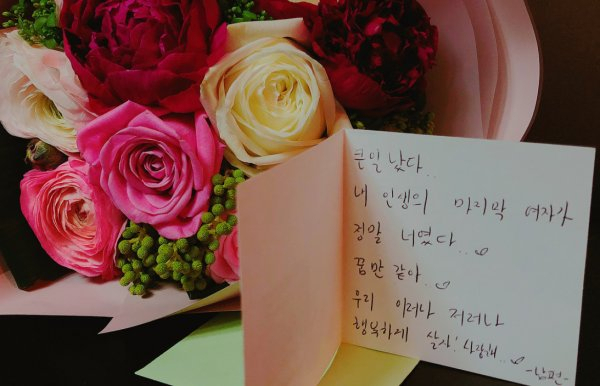 큰일 났다..
내 인생의 마지막 여자가
정말 너였다..♡
꿈만 같아..♡
우리 이러나 저러나
행복하게 살자! 사랑해..♡
-남편-